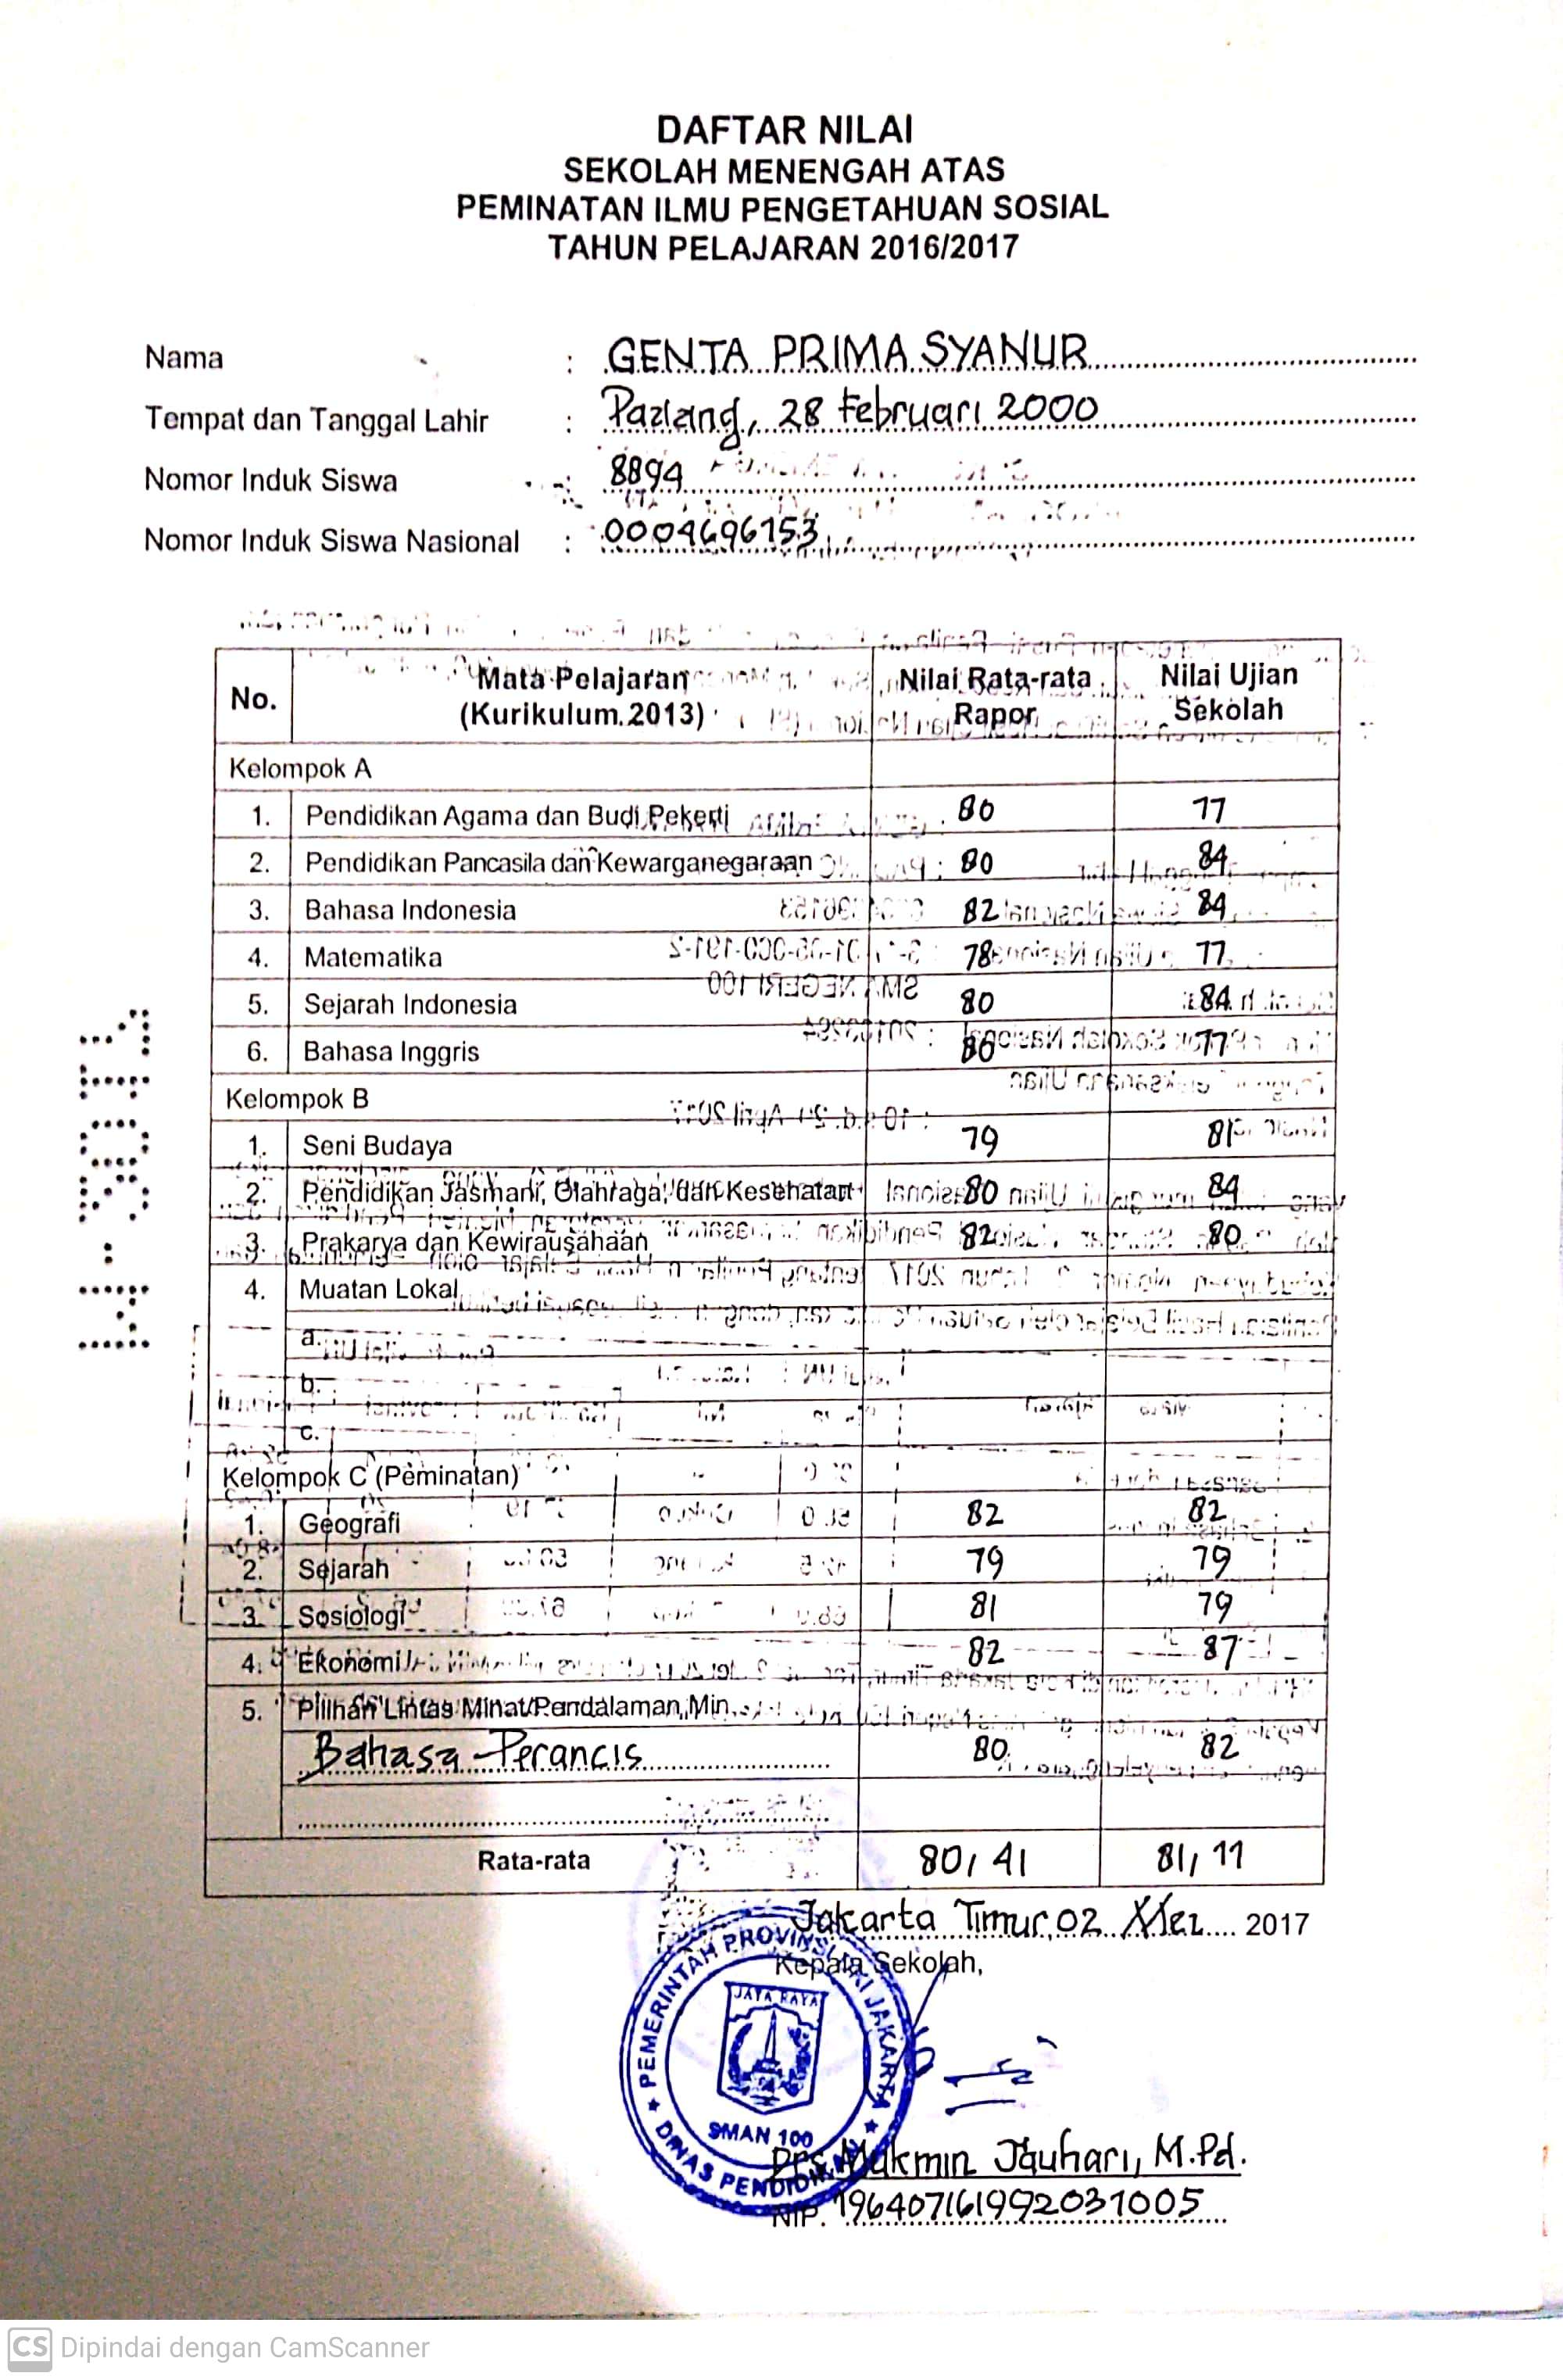 DAFTAR NILAI
SEKOLAH MENENGAH ATAS
PEMINATAN ILMU PENGETAHUAN SOSIAL
TAHUN PELAJARAN 2016/2017
Nama : GENTA PRIMA SYANUR
Tempat dan Tanggal Lahir : Padang, 28 Februari 2000
Nomor Induk Siswa : 8894
Nomor Induk Siswa Nasional : 0004696153
No. Mata Pelajaran (Kurikulum 2013) Nilai Rata-rata Rapor Nilai Ujian Sekolah
Kelompok A
1. Pendidikan Agama dan Budi Pekerti 80 77
2. Pendidikan Pancasila dan Kewarganegaraan 80 84
3. Bahasa Indonesia 82 84
4. Matematika 78 77
5. Sejarah Indonesia 80 84
6. Bahasa Inggris 80 77
Kelompok B
1. Seni Budaya 79 81
2. Pendidikan Jasmani, Olahraga, dan Kesehatan 80 84
3. Prakarya dan Kewirausahaan 82 80
4. Muatan Lokal
a.
b.
c.
Kelompok C (Peminatan)
1. Geografi 82 82
2. Sejarah 79 79
3. Sosiologi 81 79
4. Ekonomi 82 87
5. Pilihan Lintas Minat/Pendalaman Min.
Bahasa Perancis 80 82
Rata-rata 80,41 81,11
Jakarta Timur, 02 Mei 2017
Kepala Sekolah,
PEMERINTAH PROVINSI DKI JAKARTA
JAYA RAYA
SMAN 100
DINAS PENDIDIKAN
Drs. Mukmin Jauhari, M.Pd.
NIP. 196407161992031005
CS Dipindai dengan CamScanner